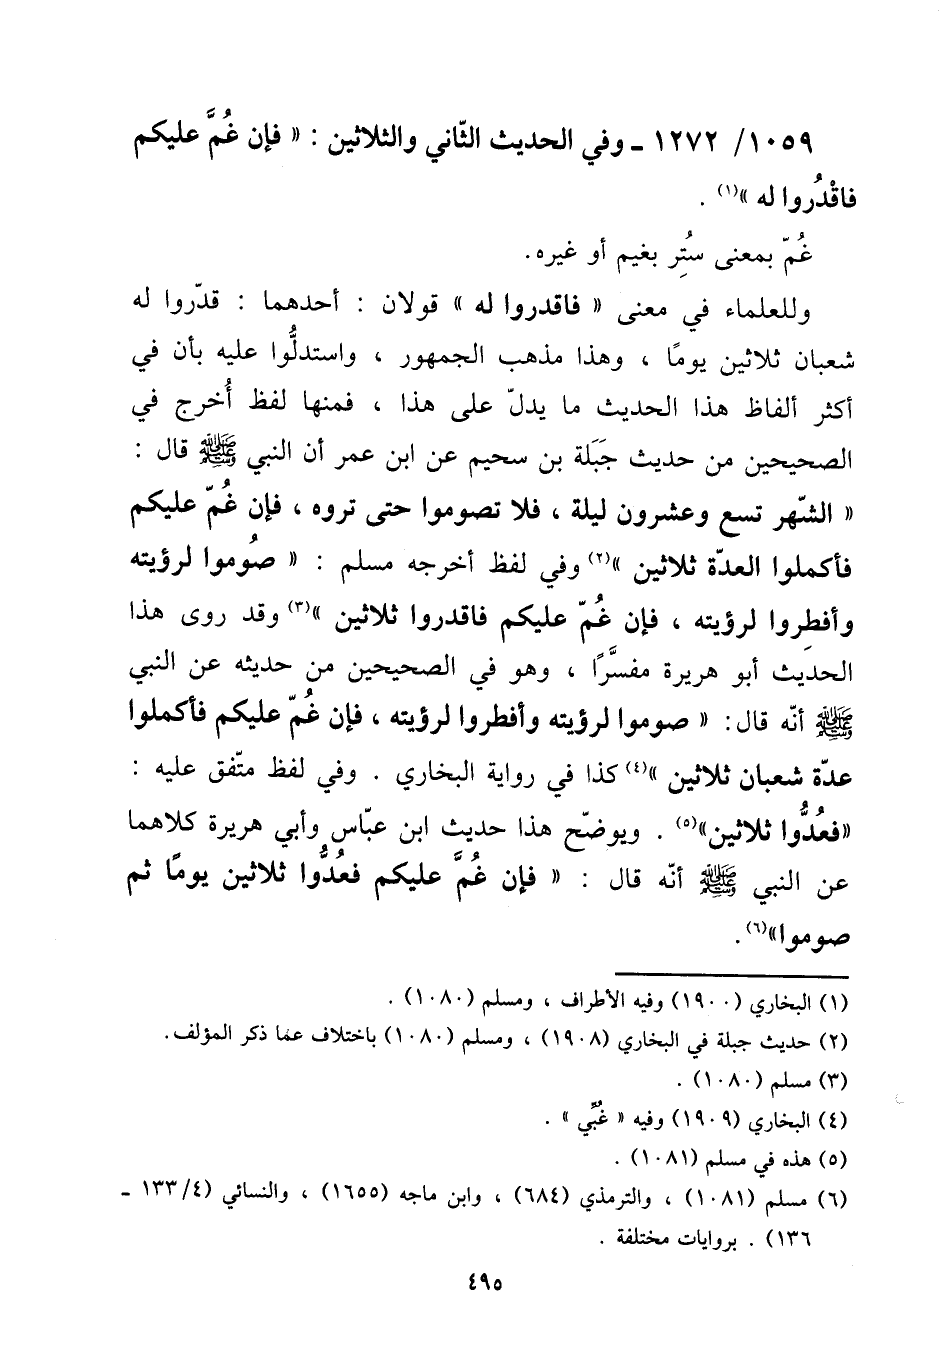 ١٠٥٩/ ١٢٧٢ ـ وفي الحديث الثّاني والثلاثين : « فإن غُمَّ عليكم
فاقْدُروا له »(١) .
غُمّ بمعنى سُتِر بغيم أو غيره.
وللعلماء في معنى « فاقدروا له » قولان : أحدهما : قدّروا له
شعبان ثلاثين يومًا ، وهذا مذهب الجمهور ، واستدلُّوا عليه بأن في
أكثر ألفاظ هذا الحديث ما يدلّ على هذا ، فمنها لفظ أُخرج في
الصحيحين من حديث جَبَلة بن سحيم عن ابن عمر أن النبي ﷺ قال :
« الشّهر تسع وعشرون ليلة ، فلا تصوموا حتى تروه ، فإن غُمّ عليكم
فأكملوا العدّة ثلاثين »(٢) وفي لفظ أخرجه مسلم : « صُوموا لرؤيته
وأفطِروا لرؤيته ، فإن غُمّ عليكم فاقدروا ثلاثين »(٣) وقد روى هذا
الحديث أبو هريرة مفسَّرًا ، وهو في الصحيحين من حديثه عن النبي
ﷺ أنّه قال: « صوموا لرؤيته وأفطروا لرؤيته ، فإن غُمّ عليكم فأكملوا
عدّة شعبان ثلاثين »(٤) كذا في رواية البخاري . وفي لفظ متّفق عليه :
«فعُدُّوا ثلاثين»(٥) . ويوضّح هذا حديث ابن عبّاس وأبي هريرة كلاهما
عن النبي ﷺ أنّه قال : « فإن غُمَّ عليكم فعُدُّوا ثلاثين يومًا ثم
صوموا»(٦).
(١) البخاري (١٩٠٠) وفيه الأطراف ، ومسلم (١٠٨٠) .
(٢) حديث جبلة في البخاري (١٩٠٨) ، ومسلم (١٠٨٠) باختلاف عما ذكر المؤلف.
(٣) مسلم (١٠٨٠) .
(٤) البخاري (١٩٠٩) وفيه « غُبِّي » .
(٥) هذه في مسلم (١٠٨١) .
(٦) مسلم (١٠٨١) ، والترمذي (٦٨٤) ، وابن ماجه (١٦٥٥) ، والنسائي (٤/ ١٣٣ ـ
١٣٦) . بروايات مختلفة .
٤٩٥